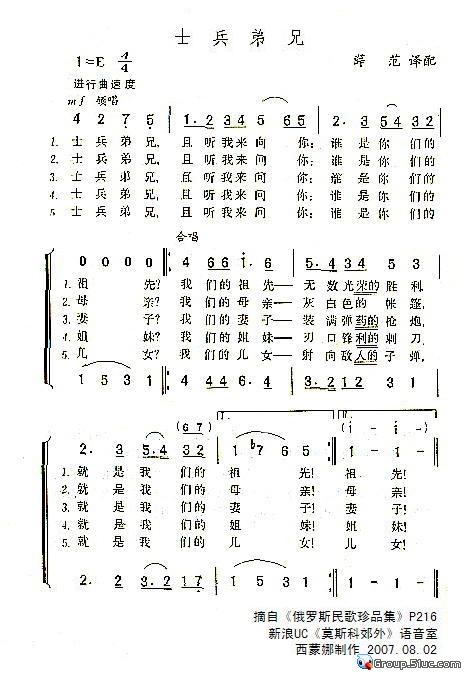 士兵弟兄
1=E 4/4
薛范 译配
进行曲速度
mf 领唱
4 2 7 5 | 1. 2 34 5 65 | 2. 3 54 32
1. 士兵弟兄, 且听我来问你: 谁是你们的
2. 士兵弟兄, 且听我来问你: 谁是你们的
3. 士兵弟兄, 且听我来问你: 谁是你们的
4. 士兵弟兄, 且听我来问你: 谁是你们的
5. 士兵弟兄, 且听我来问你: 谁是你们的
合唱
0 0 0 0 | 4 66 i. 6 | 5. 4 34 5 3
1. 祖先? 我们的祖先—无数光荣的胜利,
2. 母亲? 我们的母亲—灰白色的帐篷,
3. 妻子? 我们的妻子—装满弹药的枪炮,
4. 姐妹? 我们的姐妹—刃口锋利的刺刀,
5. 儿女? 我们的儿女—射向敌人的子弹,
1 5 3 1 | 4 44 6. 4 | 3. 2 12 3 1
(67) (i - i -)
2. 3 5.4 32 | 1 b7 65 | 1 - 1 -
1. 就是我们的祖先! 祖先!
2. 就是我们的母亲! 母亲!
3. 就是我们的妻子! 妻子!
4. 就是我们的姐妹! 姐妹!
5. 就是我们的儿女! 儿女!
2. 2 2 2 | 1 5 3 1 | 1 - 1 -
摘自《俄罗斯民歌珍品集》P216
新浪UC《莫斯科郊外》语音室
西蒙娜制作 2007.08.02
Group.51uc.com